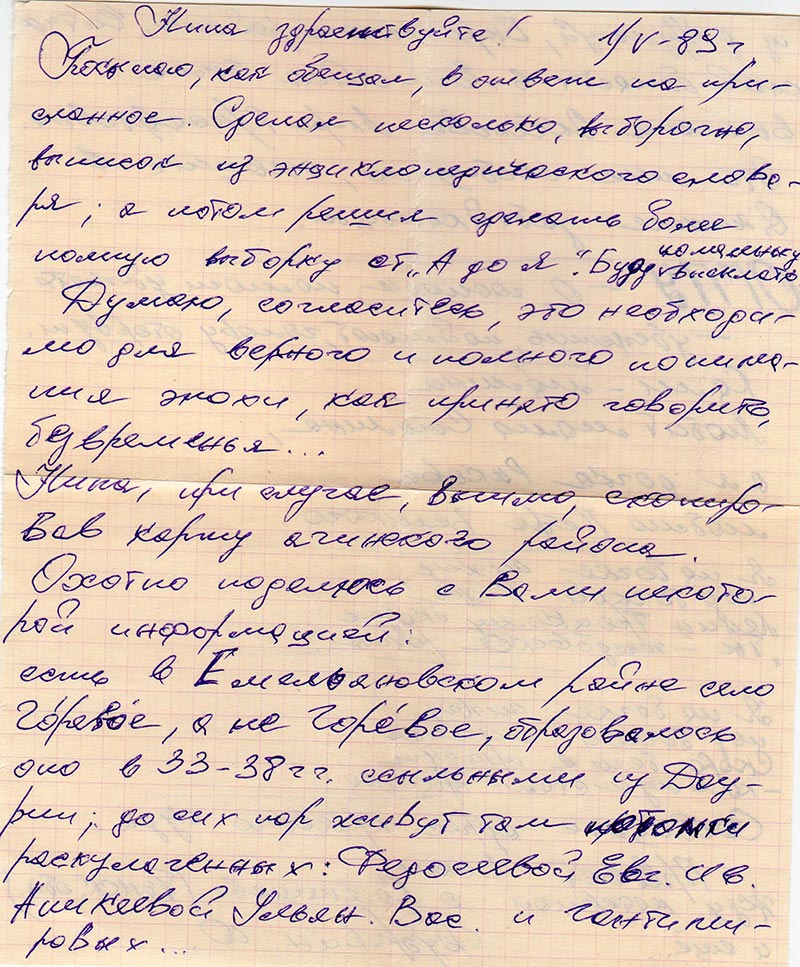 Нина здравствуйте! 1/V-89 г
Посылаю, как обещал, в ответ на при-
сланное. Сделал несколько, выборочно,
выписок из энциклопедического слова-
ря; а потом решил сделать более
полную выборку от „А до Я". Буду помаленьку высылать
Думаю, согласитесь, это необходи-
мо для верного и полного понима-
ния эпохи, как принято говорить,
безвременья...
Нина, при случае, вышлю, скопиро-
вав карту ачинского района.
Охотно поделюсь с Вами некото-
рой информацией:
есть в Емельановском райне село
Го́ревое, а не Горе́вое, образовалось
оно в 33-38 гг. ссыльными из Дау-
рии; до сих пор живут там потомки
раскулаченных: Федосеевой Евг. Ив.
Аникеевой Ульян. Вас. и Гантими-
ровых...